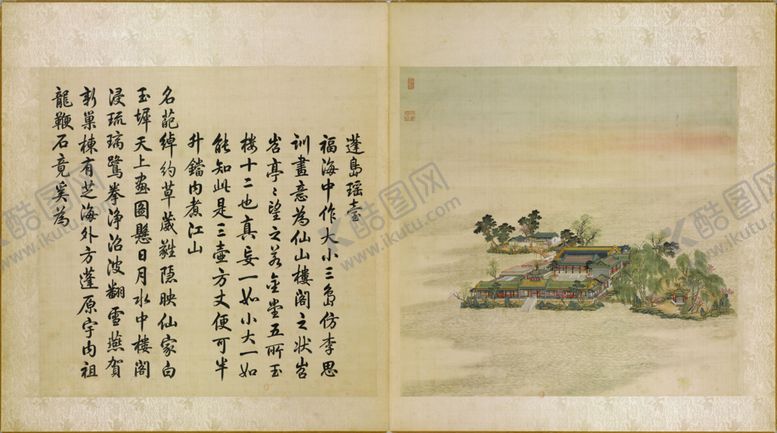 蓬島瑶臺
福海中作大小三島仿李思
訓畫意為仙山樓閣之狀岧
岧亭〻望之若金堂五所玉
樓十二也真妄一如小大一如
能知此是三壺方丈便可半
升鐺內煮江山
名葩綽約草葳蕤隱映仙家白
玉墀天上畫圖懸日月水中樓閣
浸琉璃鷺拳淨沼波翻雪燕賀
新巢棟有芝海外方蓬原宇內祖
龍鞭石竟奚為
酷图网
www.ikutu.com
酷图网
www.ikutu.com
酷图网
www.ikutu.com